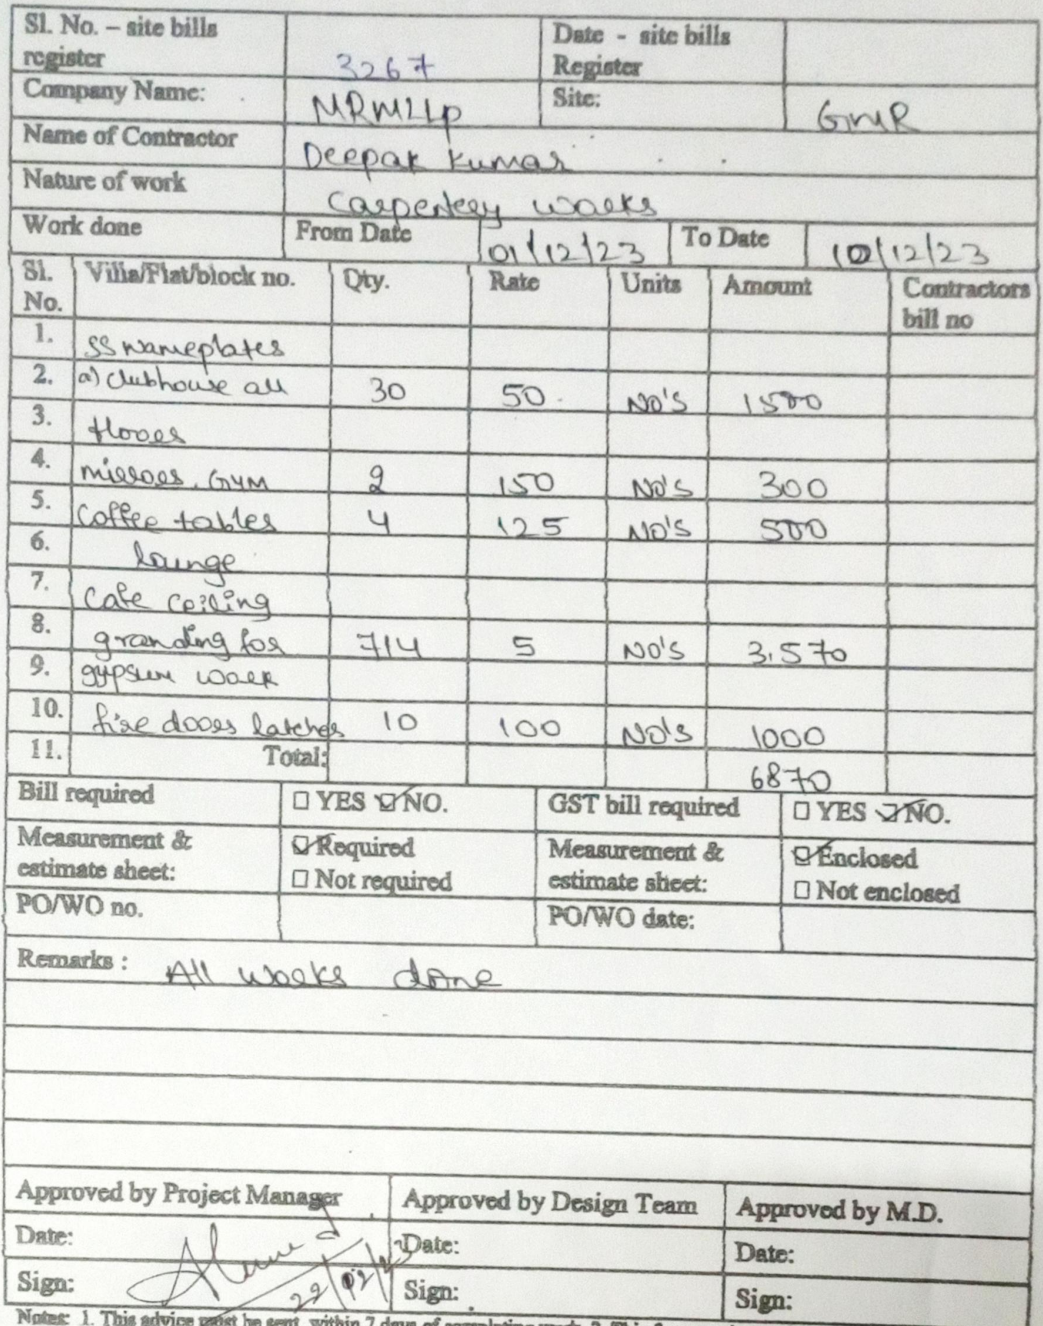 Sl. No. – site bills register 3267 Date - site bills Register
Company Name: MRMLLP Site: GMR
Name of Contractor Deepak Kumar
Nature of work Carpentery works
Work done From Date 01/12/23 To Date 10/12/23
Sl. No. Villa/Flat/block no. Qty. Rate Units Amount Contractors bill no
1. SS nameplates
2. a) clubhouse all 30 50 No's 1500
3. floors
4. mirrors, GYM 2 150 No's 300
5. Coffee tables 4 125 No's 500
6. lounge
7. Cafe ceiling
8. granding for 714 5 No's 3.570
9. gypsum work
10. fire doors latches 10 100 No's 1000
11. Total: 6870
Bill required ☐ YES ☑ NO. GST bill required ☐ YES ☑ NO.
Measurement & estimate sheet: ☑ Required ☐ Not required Measurement & estimate sheet: ☑ Enclosed ☐ Not enclosed
PO/WO no. PO/WO date:
Remarks : All works done
Approved by Project Manager Approved by Design Team Approved by M.D.
Date: Date: Date:
Sign: Sign: Sign:
Notes: 1. This advice must be sent within 7 days of